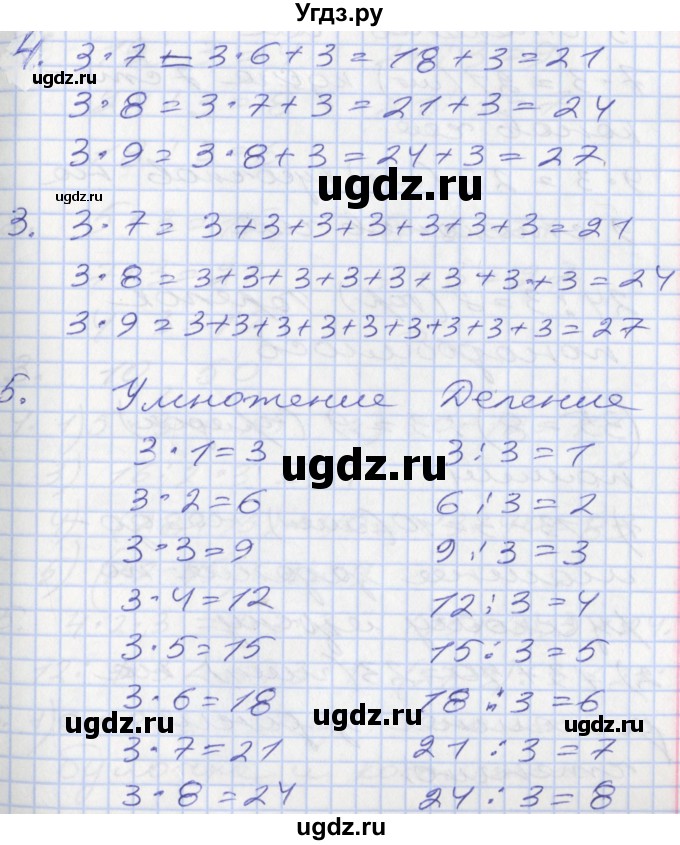 Угдз.ру
4. 3·7 = 3·6+3 = 18+3 = 21
3·8 = 3·7+3 = 21+3 = 24
3·9 = 3·8+3 = 24+3 = 27
ugdz.ru
ugdz.ru
ugdz.ru
3. 3·7 = 3+3+3+3+3+3+3 = 21
3·8 = 3+3+3+3+3+3+3+3 = 24
3·9 = 3+3+3+3+3+3+3+3+3 = 27
5. Умножение Деление
3·1=3 3:3=1
ugdz.ru
3·2=6 6:3=2
3·3=9 9:3=3
3·4=12 12:3=4
3·5=15 15:3=5
3·6=18 18:3=6
ugdz.ru ugdz.ru ugdz.ru
3·7=21 21:3=7
3·8=24 24:3=8
ugdz.ru